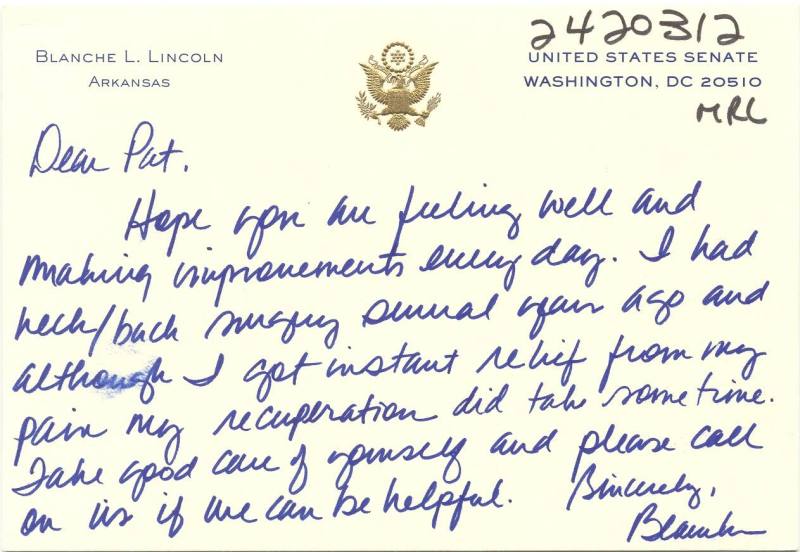 2420312
BLANCHE L. LINCOLN
ARKANSAS
UNITED STATES SENATE
WASHINGTON, DC 20510
MRL
Dear Pat,
Hope you are feeling well and
making improvements every day. I had
neck/back surgery several years ago and
although I got instant relief from my
pain my recuperation did take some time.
Take good care of yourself and please call
on us if we can be helpful. Sincerely,
Blanche